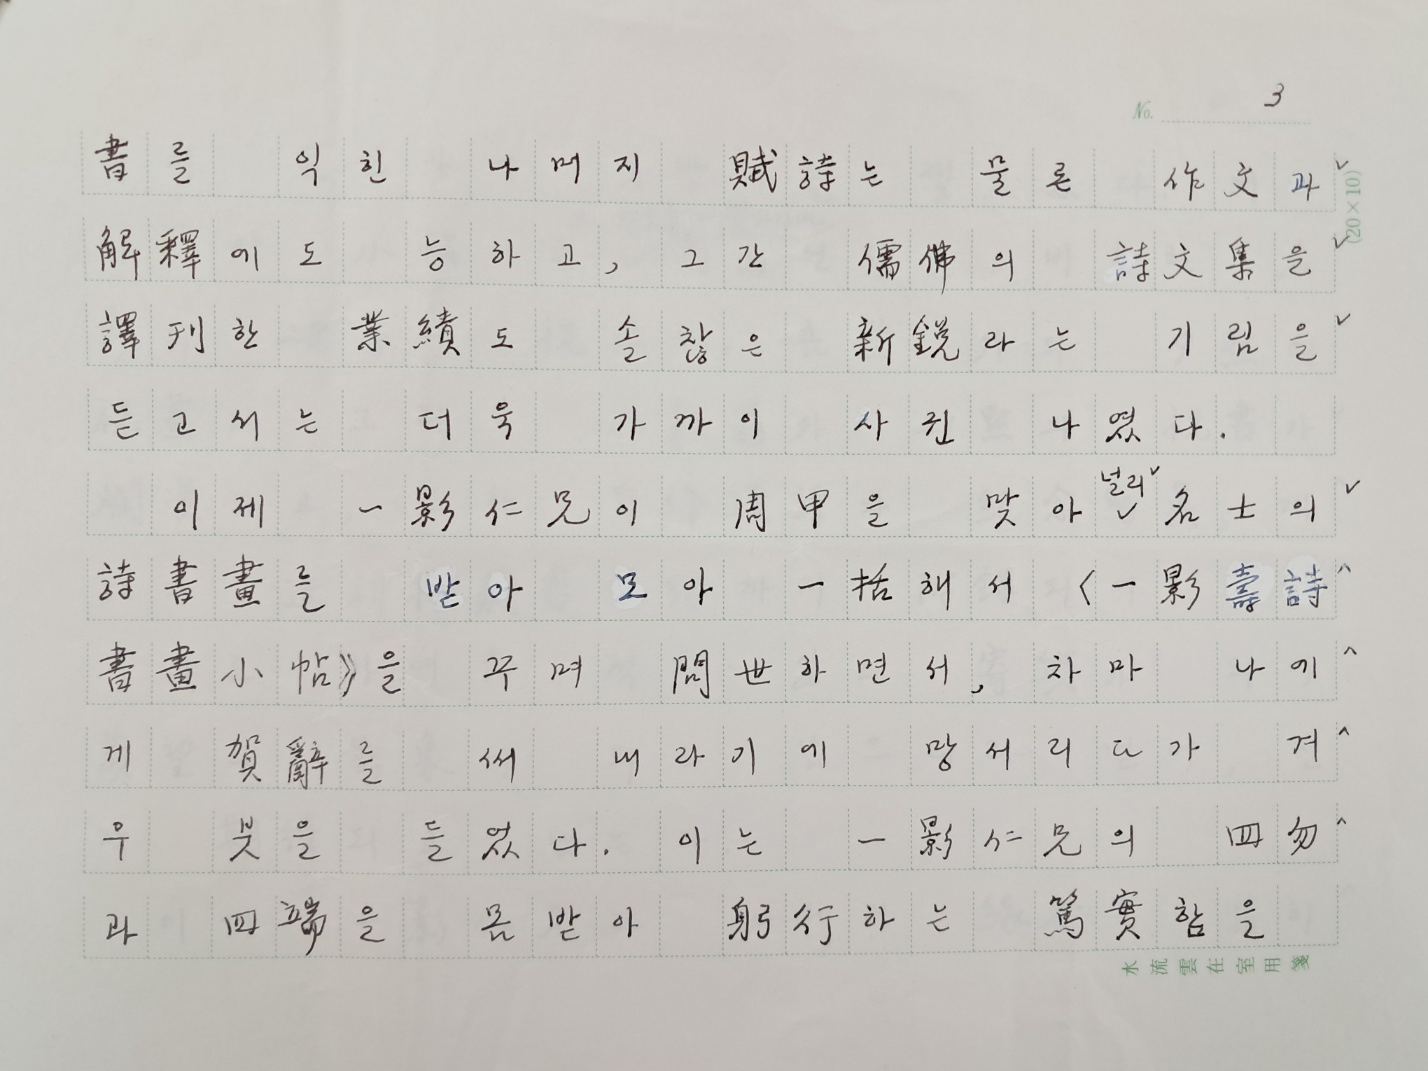 No. 3
(20×10)
書를 익힌 나머지 賦詩는 물론 作文과∨
解釋에도 능하고, 그간 儒佛의 詩文集을∨
譯刊한 業績도 솔찮은 新銳라는 기림을∨
듣고서는 더욱 가까이 사귄 나였다.
이제 一影仁兄이 周甲을 맞아 널리∨ 名士의∨
詩書畫를 받아 모아 一括해서 〈一影壽詩^
書畫小帖》을 꾸며 問世하면서, 차마 나에^
게 賀辭를 써 내라기에 망서리다가 겨^
우 붓을 들었다. 이는 一影仁兄의 四勿^
과 四端을 몸받아 躬行하는 篤實함을
水流雲在室用箋